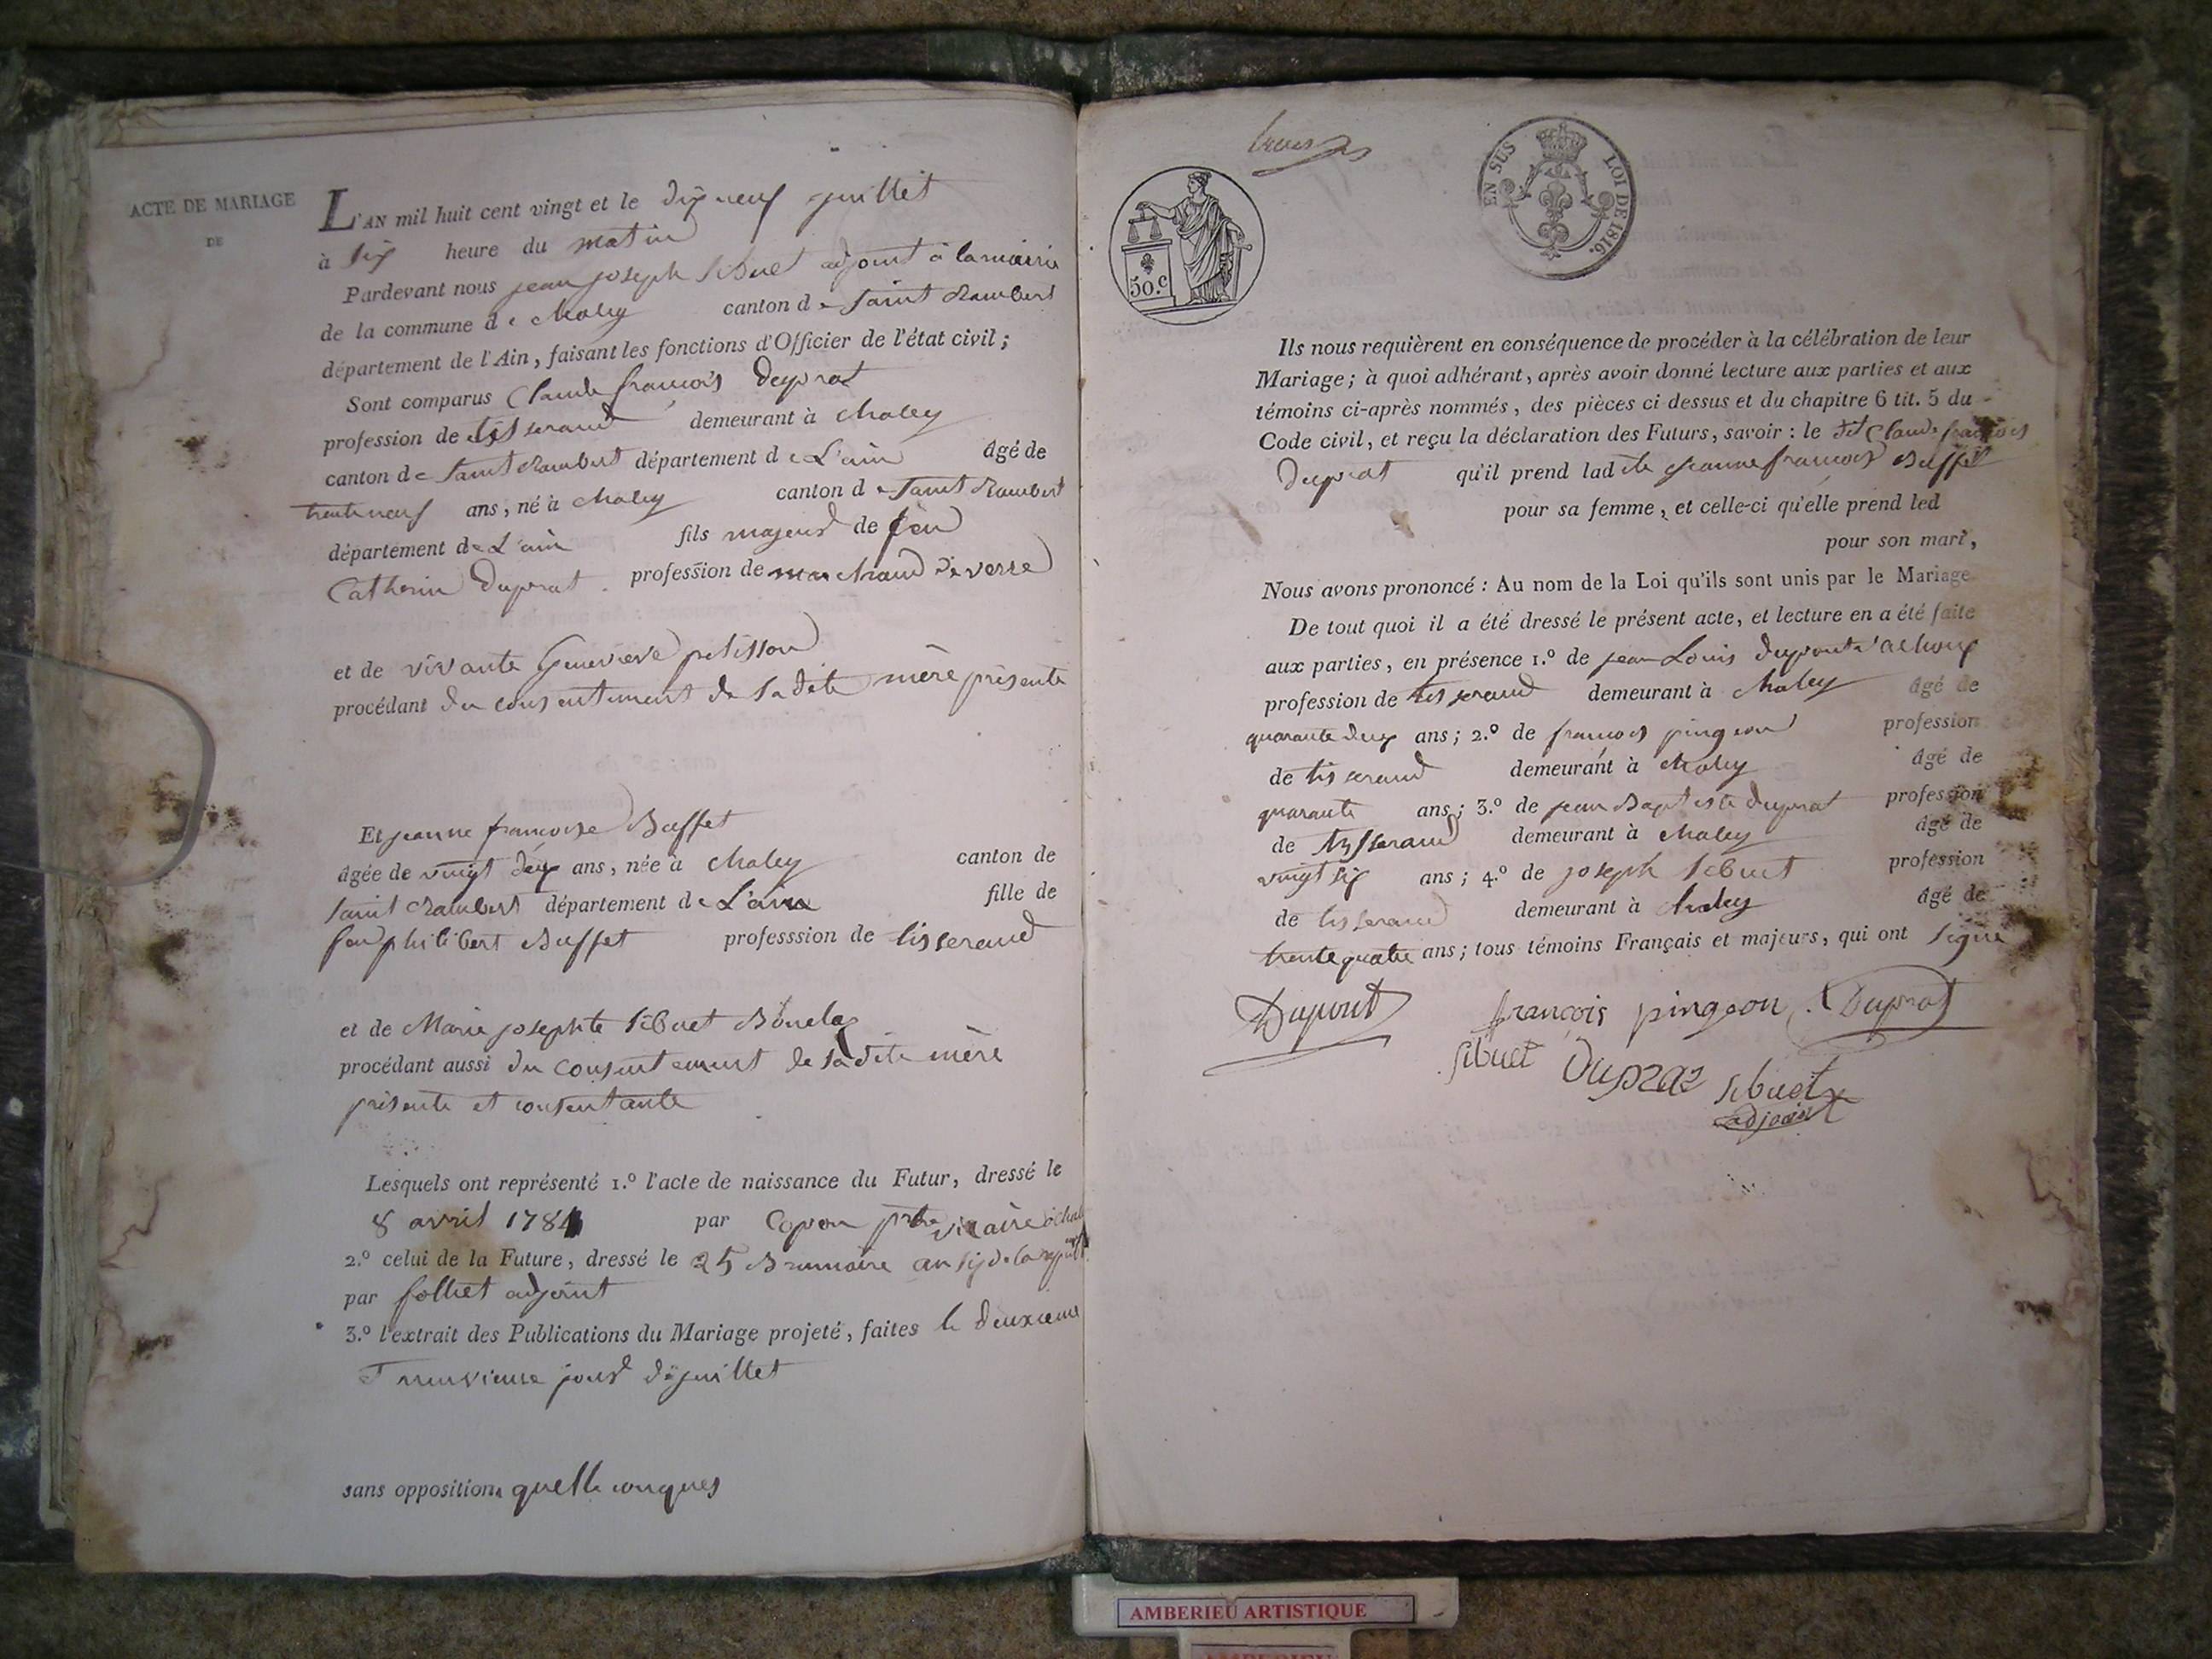 ACTE DE MARIAGE
DE
L'AN mil huit cent vingt et le dix neuf juillet
à six heure du matin
Pardevant nous jean joseph Sibuet adjoint à la mairie
de la commune de chaley canton de Saint Rambert
département de l'Ain, faisant les fonctions d'Officier de l'état civil ;
Sont comparus Claude françois duprat
profession de tisserand demeurant à chaley
canton de Saint Rambert département de L'ain âgé de
trente neuf ans, né à chaley canton de Saint Rambert
département de L'ain fils majeur de feu
Catherin duprat profession de marchand de verre
et de vivante Genevieve pelisson
procédant du consentement de sa dite mère présente
Et jeanne françoise Buffet
âgée de vingt deux ans, née à chaley canton de
Saint Rambert département de L'ain fille de
feu philibert Buffet professsion de tisserand
et de Marie josephte Sibuet
procédant aussi du consentement de sa dite mère
présente et consentante
Lesquels ont représenté 1.º l'acte de naissance du Futur, dressé le
8 avril 1781 par vicaire
2.º celui de la Future, dressé le 25 Brumaire an six de la
par folliet adjoint
3.º l'extrait des Publications du Mariage projeté, faites le deuxieme
et neuvieme jour de juillet
sans oppositions quelle conques
50.c
EN SUS
LOI DE 1816.
Ils nous requièrent en conséquence de procéder à la célébration de leur
Mariage ; à quoi adhérant, après avoir donné lecture aux parties et aux
témoins ci-après nommés, des pièces ci dessus et du chapitre 6 tit. 5 du
Code civil, et reçu la déclaration des Futurs, savoir : le dit Claude françois
duprat qu'il prend lad ite jeanne françois Buffet
pour sa femme, et celle-ci qu'elle prend led
pour son mari,
Nous avons prononcé : Au nom de la Loi qu'ils sont unis par le Mariage
De tout quoi il a été dressé le présent acte, et lecture en a été faite
aux parties, en présence 1.º de jean Louis dupont
profession de tisserand demeurant à chaley âgé de
quarante deux ans ; 2.º de francois pingeon profession
de tisserand demeurant à chaley âgé de
quarante ans ; 3.º de jean Baptiste duprat profession
de tysserand demeurant à chaley âgé de
vingt six ans ; 4.º de joseph Sibuet profession
de tisserand demeurant à chaley âgé de
trente quatre ans ; tous témoins Français et majeurs, qui ont signé
Dupont françois pingeon Duprat
Sibuet Dupraz Sibuet
adjoint
AMBERIEU ARTISTIQUE